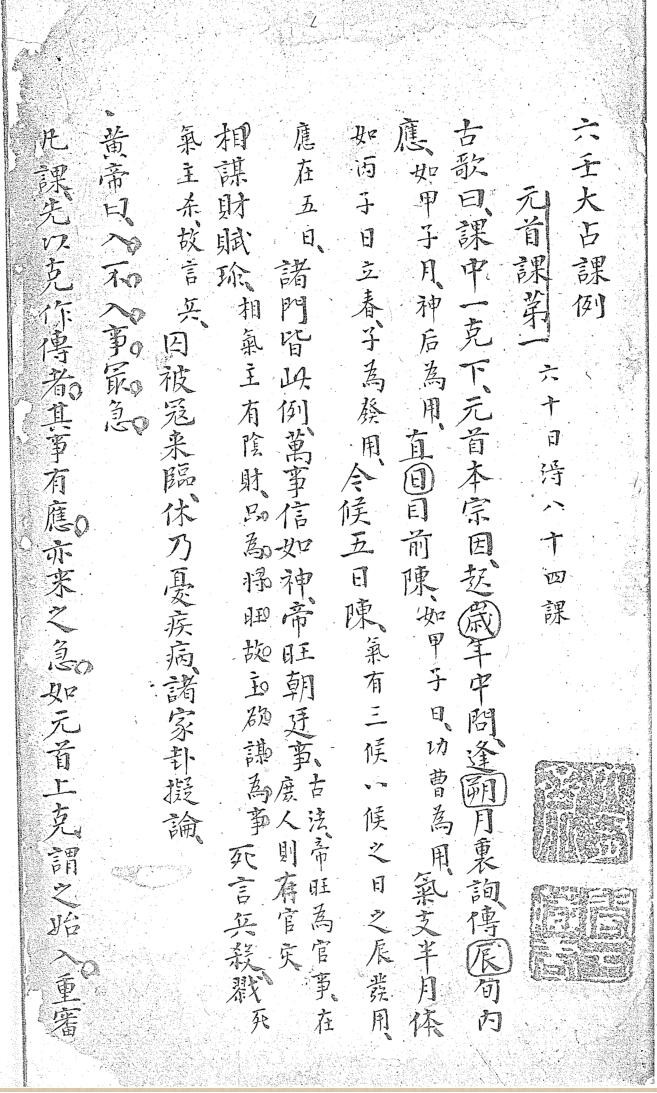 六壬大占課例
元首課第一 六十日得八十四課
古歌曰、課中一克下、元首本宗因、起歲年中問、逢朔月裏詢、傳辰旬内
應、如甲子月、神后為用、直日目前陳、如甲子日、功曹為用、氣支半月体、
如丙子日立春、子為發用、令候五日陳、氣有三候、八候之日之辰發用、
應在五日、諸門皆此例、萬事信如神、帝旺朝廷事、古法、帝旺為官事、在庶人則有官灾
相謀財賦珎、相氣主有陰財、只為将旺故主欲謀為事 死言兵殺戮、死
氣主杀、故言兵、囚被冤来臨、休乃憂疾病、諸家卦擬論、
黄帝曰、入不入事冣急
凡課、先以克作傳者、其事有應、亦来之急、如元首上克、謂之始入、重審